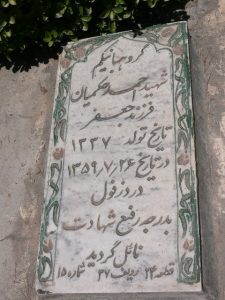 گروهبانیکم
شهید احمد حکمیان
فرزند جعفر
تاریخ تولد ۱۳۳۷
در تاریخ ۱۳۵۹/۷/۲۶
در دزفول
بدرجه رفیع شهادت
نائل گردید
قطعه ۲۴ ردیف ۳۷ شماره ۱۵